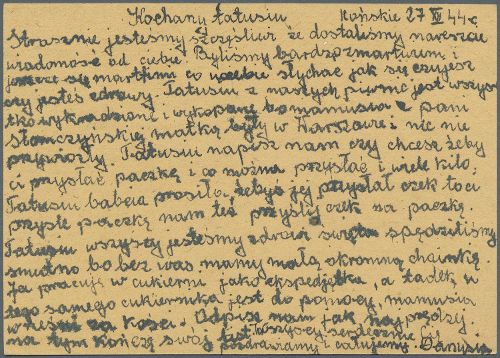 Kochany Tatusiu Końskie 27 IV 44 r
Strasznie jesteśmy szczęśliwi że dostaliśmy nareszcie
wiadomość od ciebie. Byliśmy bardzo zmartwieni i
jeszcze się martwimy co u ciebie słychać jak się czujesz
czy jesteś zdrowy. Tatusiu z naszych piwnic jest wszys
tko wykradzione i wykopane bo mamusia z pani
Słomczyńskiej matką były w Warszawie i nic nie
przywiozły. Tatusiu napisz nam czy chcesz żeby
ci przysłać paczkę i co można przysłać i wiele kilo.
Tatusiu babcia prosiła żebyś jej przysłał czek to ci
przyśle paczkę nam też przyślij czek na paczkę.
Tatusiu wszyscy jesteśmy zdrowi święta spędziliśmy
smutno bo bez was mamy małą skromną choinkę
Ja pracuję w cukierni jako ekspedjętka, a tadek u
tego samego cukiernika jest do pomocy, mamusia
w leśni za kości. Odpisz nam jak naj prędzej
na tym kończę swój list wszyscy serdecznie cię
pozdrawiamy i całujemy. Danusia